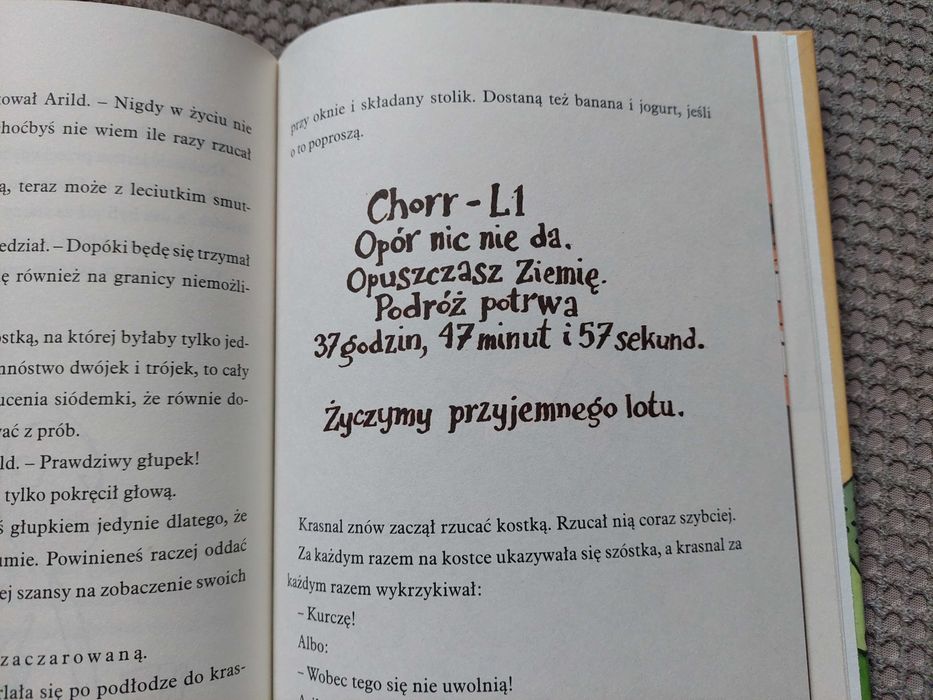 ował Arild. – Nigdy w życiu nie
hoćbyś nie wiem ile razy rzucał
ą, teraz może z leciutkim smut-
edział. – Dopóki będę się trzymał
ę również na granicy niemożli-
ostką, na której byłaby tylko jed-
mnóstwo dwójek i trójek, to cały
ucenia siódemki, że równie do-
wać z prób.
ld. – Prawdziwy głupek!
tylko pokręcił głową.
ś głupkiem jedynie dlatego, że
umie. Powinieneś raczej oddać
ej szansy na zobaczenie swoich
zaczarowaną.
rlała się po podłodze do kras-
przy oknie i składany stolik. Dostaną też banana i jogurt, jeśli
o to poproszą.
Chorr – L1
Opór nic nie da.
Opuszczasz Ziemię.
Podróż potrwa
37 godzin, 47 minut i 57 sekund.
Życzymy przyjemnego lotu.
Krasnal znów zaczął rzucać kostką. Rzucał nią coraz szybciej.
Za każdym razem na kostce ukazywała się szóstka, a krasnal za
każdym razem wykrzykiwał:
– Kurczę!
Albo:
– Wobec tego się nie uwolnią!